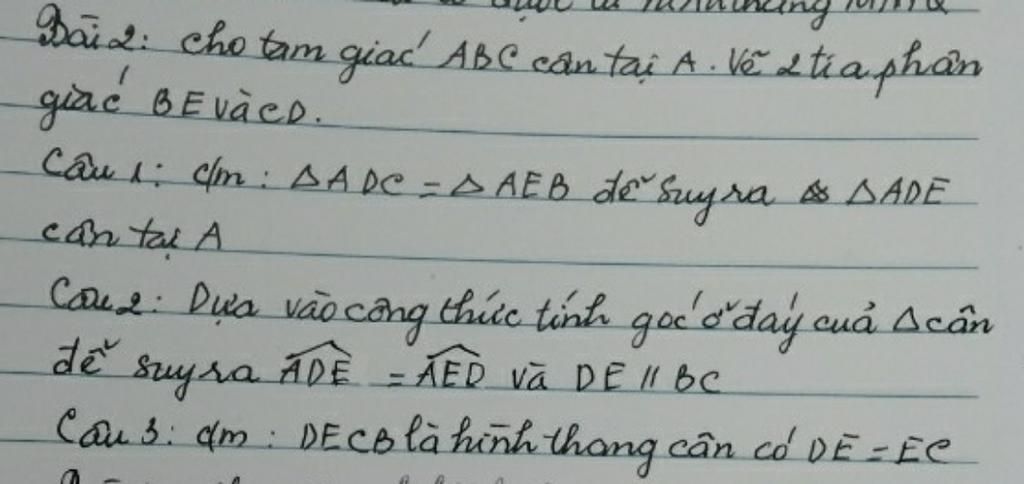 Bài 2: cho tam giác ABC cân tại A. Vẽ 2 tia phân
giác BE và CD.
Câu 1: c/m: △ADC = △AEB để suy ra △ADE
cân tại A
Câu 2: Dựa vào công thức tính góc ở đáy của △ cân
để suy ra \widehat{ADE} = \widehat{AED} và DE // BC
Câu 3: c/m: DECB là hình thang cân có DE = EC